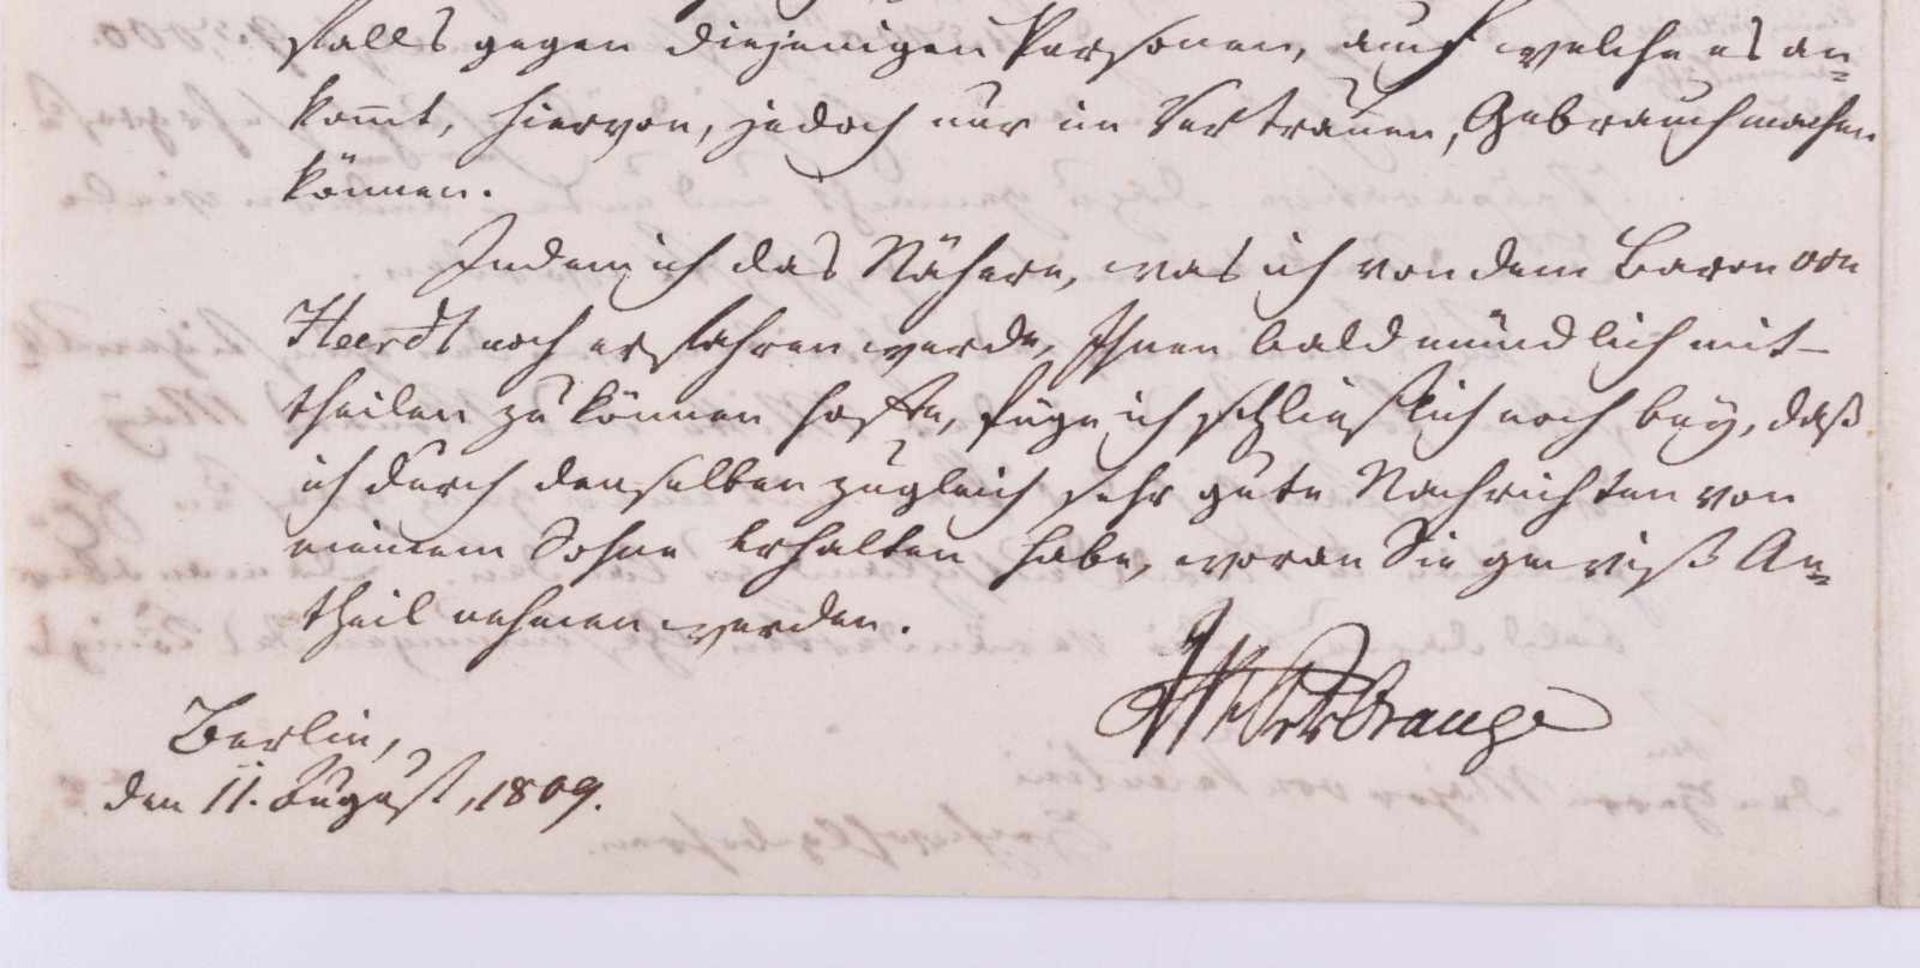 falls gegen diejenigen Personen, auf welche es an=
kom̅t, hiervon, jedoch nur im Vertrauen, Gebrauch machen
können.
Indem ich das Nähere, was ich von dem Baron von
Heerdt noch erfahren werde, Ihnen bald mündlich mit-
theilen zu können hoffe, füge ich schließlich noch bey, daß
ich durch denselben zugleich sehr gute Nachrichten von
meinem Sohne erhalten habe, woran Sie gewiß An=
theil nehmen werden.
Orange
Berlin,
den 11. August, 1809.